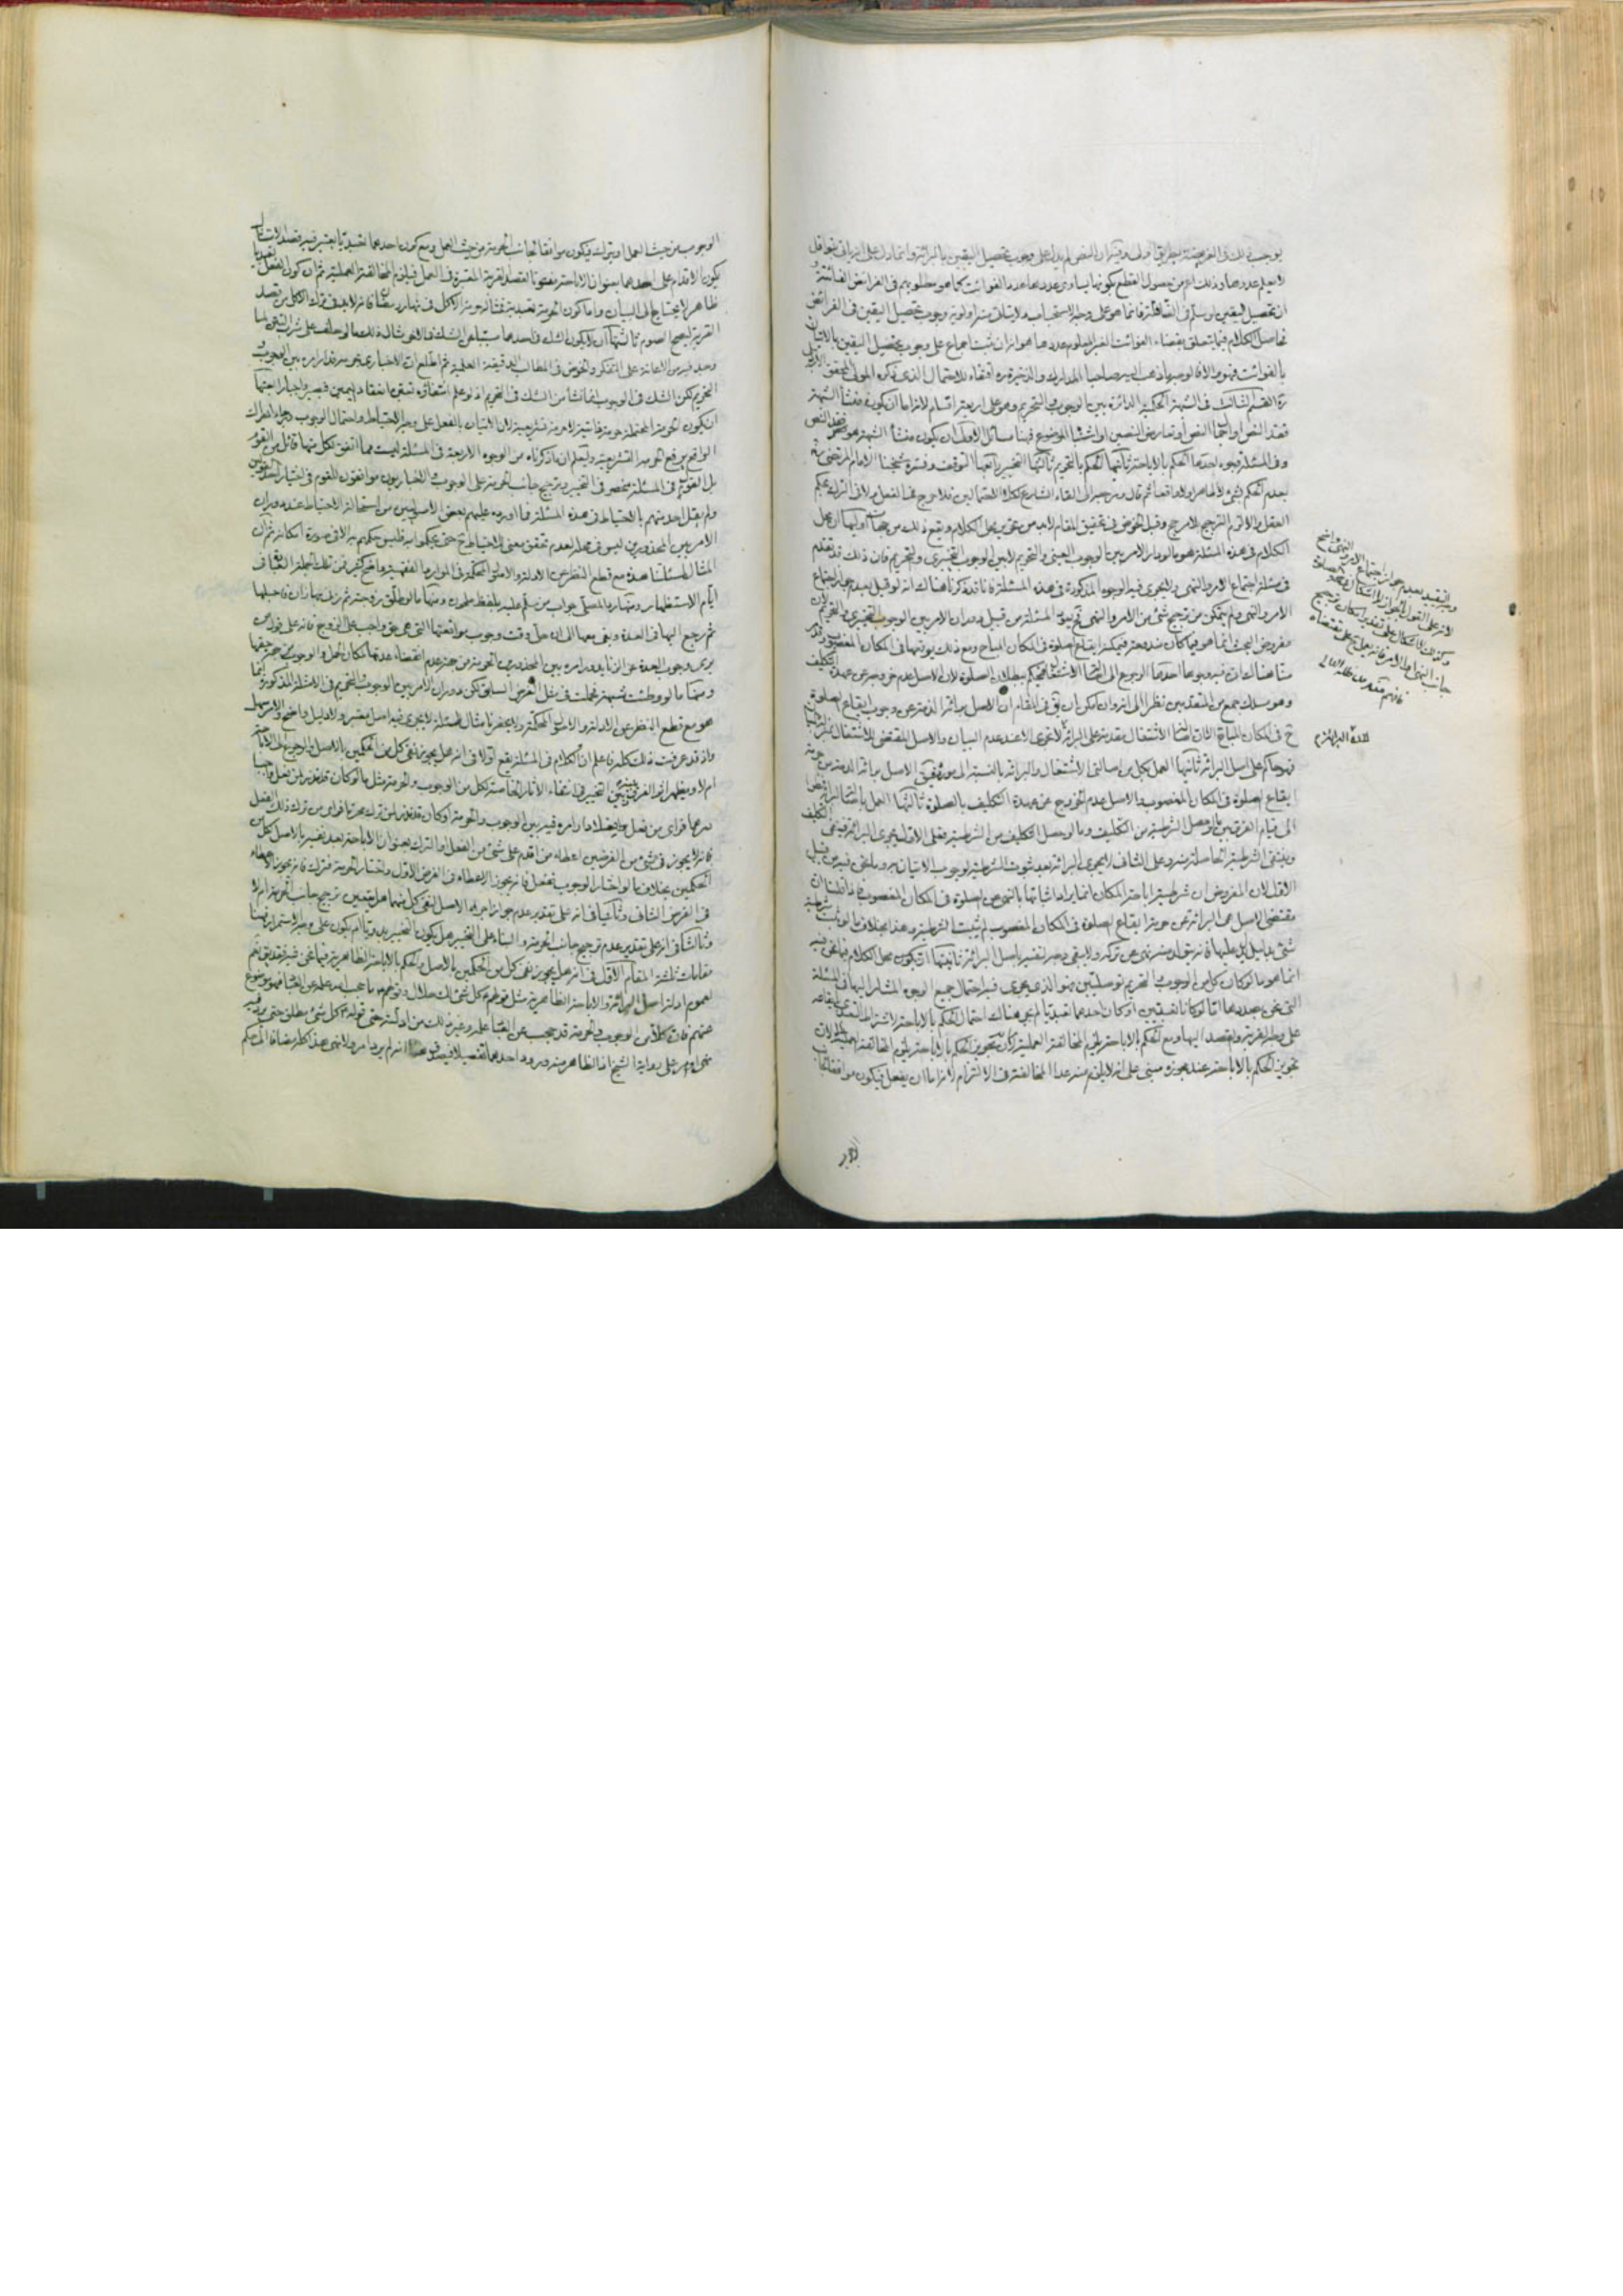 يوجب ذلك في الفريضة بطريق اولى وفيه ان النص لم يدل على وجوب تحصيل اليقين بالبرائة وانما دل على انه اتى بنوافل
لا يعلم عددها وذلك اعم من حصول القطع بكونها يساوي عددها عدد الفوائت كما هو مطلوبهم في الفرائض الفائتة و
ان تحصيل اليقين لو سلم في النافلة فانما هو على وجه الاستحباب ولا يتأتى منه اولوية وجوب تحصيل اليقين في الفرائض
حاصل الكلام فيما يتعلق بقضاء الفوائت الغير المعلوم عددها هو انه ان ثبت اجماع على وجوب تحصيل اليقين بالاتيان
بالفوائت فهو والا فالوجه ما ذهب اليه صاحبا المدارك والذخيرة ره اقتفاء للاحتمال الذي ذكره المولى المحقق الاردبيلي
ره القسم الثالث في الشبهة الحكمية الدائرة بين الوجوب والتحريم وهو على اربعة اقسام لانه اما ان يكون منشأ الشبهة
فقد النص او اجمال النص او تعارض النصين او اشتباه الموضوع فهنا مسائل الاولى ان يكون منشأ الشبهة هو فقد النص
وفي المسئلة وجوه احدها الحكم بالاباحة ثانيها الحكم بالتحريم ثالثها التخيير رابعها التوقف وفسره شيخنا الامام المرتضى ره
بعدم الحكم بشيء لا ظاهرا ولا واقعا ثم قال ومرجعه الى الغاء الشارع لكلا الاحتمالين فلا حرج في الفعل ولا في الترك بحكم
العقل والا لزم الترجيح بلا مرجح وقبل الخوض في تحقيق المقام لابد من تحرير محل الكلام ويقع ذلك من جهات اوليها ان محل
الكلام في هذه المسئلة هو ما لو دار الامر بين الوجوب العيني والتحريم لا بين الوجوب التخييري والتحريم فان ذلك قد تقدم
في مسئلة اجتماع الامر والنهي ولا يجري فيه الوجوه المذكورة في هذه المسئلة فانا قد ذكرنا هناك انه لو قيل بعدم جواز اجتماع
الامر والنهي ولم يتمكن من ترجيح شيء من الامر والنهي في تلك المسئلة من قبيل دوران الامر بين الوجوب التخييري والتحريم لان
مفروض البحث انما هو فيما كان مندوحة فيمكنه ايقاع الصلوة في المكان المباح ومع ذلك يوقعها في المكان المغصوب وقد
منا هناك ان فيه وجوها احدها الرجوع الى اصالة الاشتغال فيحكم ببطلان الصلوة لان الاصل عدم خروجه عن عهدة التكليف
وهو مسلك جمع من المتقدمين نظرا الى انه وان امكن ان يق في المقام ان الاصل برائة الذمة عن وجوب ايقاع الصلوة
ح في المكان المباح الا ان اصالة الاشتغال مقدمة على البرائة لانه لا تجري الا عند عدم البيان والاصل المقتضي للاشتغال بيان
فهو حاكم على اصل البرائة ثانيها العمل بكل من اصالتي الاشتغال والبرائة بالنسبة الى مورده فيق الاصل برائة الذمة من حرمة
ايقاع الصلوة في المكان المغصوب والاصل عدم الخروج عن عهدة التكليف بالصلوة ثالثها العمل باصالة البرائة نظرا
الى قيام الفرق بين ما يحصل الشرطية من التكليف وما لو حصل التكليف من الشرطية فعلى الاول يجري البرائة فينتفي التكليف
وينتفي الشرطية الحاصلة منه وعلى الثاني لا يجري البرائة بعد ثبوت الشرطية لوجوب الاتيان به وما نحن فيه من قبيل
الاول لان المفروض ان شرطية اباحة المكان انما يراد اثباتها بالنهي عن الصلوة في المكان المغصوب فاذا قلنا ان
مقتضى الاصل هي البرائة عن حرمة ايقاع الصلوة في المكان المغصوب لم يثبت الشرطية وهذا بخلاف ما لو ثبت شرطية
شيء بدليل يدل عليها فانه يتولد منه نهي عن تركه ولا يبقى وجه لنفيه باصل البرائة ثانيتها ان يكون محل الكلام فيما نحن فيه
انما هو ما لو كان كل من الوجوب والتحريم توصليين فهو الذي يجري فيه احتمال جميع الوجوه المشار اليها في المسئلة
التي نحن بصددها اما لو كانا تعبديين او كان احدهما تعبديا لم يجر هناك احتمال الحكم بالاباحة لاشتراط التعبدي بايقاعه
على وجه القربة وبقصد اليها ومع الحكم بالاباحة يلزم المخالفة العملية لان تجويز الحكم بالاباحة يلزم المخالفة العملية لان
تجويز الحكم بالاباحة عند مجوزه مبني على انه لا يلزم منه عدا المخالفة في الالتزام لانه اما ان يفعل فيكون موافقا لجانب
وجه التقييد بعدم جواز اجتماع الامر والنهي واضح
لانه على القول بالجواز لا اشكال في صحة الصلوة
وكذا لا اشكال على تقدير امكان ترجيح
جانب النهي او الامر فانه يعمل على مقتضاه
فافهم منه مد ظله العالي
الوجوب من حيث العمل او يترك فيكون موافقا لجانب الحرمة من حيث العمل ومع كون احدهما تعبديا يعتبر فيه قصد الامتثال
يكون الاقدام على احدهما بعنوان الاباحة مفوتا لقصد القربة المعتبرة في العمل فيلزم المخالفة العملية ثم ان كون الفعل تعبديا
ظاهر لا يحتاج الى البيان واما كون الحرمة تعبدية فمثاله حرمة الاكل في نهار رمضان فانه لابد في ترك الاكل من قصد
القربة ليصح الصوم ثالثتها ان لا يكون الشك في احدهما مسببا عن الشك في الاخر مثال ذلك ما لو حلف على شرب التتن لما
وجد فيه من الاعانة على التفكر والخوض في المطالب الدقيقة العلمية ثم اطلع ان الاخباري يحرمه فدار امره بين الوجوب و
التحريم لكن الشك في الوجوب انما نشأ من الشك في التحريم اذ لو علم انتفاؤه تبين انعقاد اليمين فيصير واجبا واجتهاد
ان يكون الحرمة المحتملة حرمة ذاتية لا حرمة تشريعية لان الاتيان بالفعل على وجه الاحتياط واحتمال الوجوب وجاء ادراك
الواقع يرفع الحرمة التشريعية وليعلم ان ما ذكرناه من الوجوه الاربعة في المسئلة ليست مما اتفق لكل منها قائل من القوم
بل القول في المسئلة منحصر في التخيير وترجيح جانب الحرمة على الوجوب والاخباريون موافقون للقوم في اختيار احد القولين
ولم يقل احد منهم بالاحتياط في هذه المسئلة فما اورده عليهم بعض الاصوليين من استحالة الاحتياط عند دوران
الامر بين المحذورين ليس في محله لعدم تحقق معنى الاحتياط ح حتى يحكموا به فليس حكمهم به الا في صورة امكانه ثم ان
المثال لمسئلتنا هذه مع قطع النظر عن الادلة والاصول المحكمة في الموارد الفقهية واضح كثير فمن تلك الجملة العبادة في
ايام الاستظهار ومنها رد المصلي جواب من سلم عليه بلفظ ملحون ومنها ما لو طلق زوجته ثم زنى بها ان فاحبلها
ثم رجع اليها في العدة وبقي معها الى ان حل وقت وجوب مواقعتها التي هي حق واجب على الزوج فانه على قول من
يرى وجوب العدة عن الزنا يدور امره بين المحذورين الحرمة من جهة عدم انقضاء عدتها لمكان الحمل والوجوب من جهة حقها
ومنها ما لو وطئت شبهة فحملت في مثل الفرض السابق لكن دوران الامر بين الوجوب والتحريم في الامثلة المذكورة انما
هو مع قطع النظر عن الادلة والاصول المحكمة ولا يحضرنا مثال لمسئلة لا يجري فيه اصل معتبر ولا دليل واضح والامر سهل
واذ قد عرفت ذلك كله فاعلم ان الكلام في المسئلة يقع اولا في انه هل يجوز نفي كل من الحكمين بالاصل والرجوع الى الاباحة
ام لا ويظهر اثر الفرق بينه وبين التخيير في انتفاء الاثار الخاصة لكل من الوجوب والحرمة مثل ما لو كان قد نذر لمن فعل واجبا
درهما فراى من فعل فعلا دار امره فيه بين الوجوب والحرمة او كان قد نذر لمن ترك محرما فراى من ترك ذلك الفعل
فانه لا يجوز في شيء من الفرضين اعطاء من اقدم على شيء من الفعل او الترك بعنوان الاباحة بعد نفيه بالاصل كل من
الحكمين بخلاف ما لو اختار الوجوب ففعل فانه يجوز الاعطاء في الفرض الاول واختار الحرمة فترك فانه يجوز اعطاؤه
في الفرض الثاني وثانيا في انه على تقدير عدم جواز اجراء الاصل لنفي كل منهما هل يتعين ترجيح جانب الحرمة ام لا
وثالثا في انه على تقدير عدم ترجيح جانب الحرمة والبناء على التخيير هل يكون التخيير بدويا ام يكون على وجه الاستمرار فهنا
مقامات ثلثة المقام الاول في انه هل يجوز نفي كل من الحكمين بالاصل والحكم بالاباحة الظاهرية فيما نحن فيه فقد يق نعم
لعموم ادلة اصل البرائة والاباحة الظاهرية مثل قولهم ع كل شيء لك حلال وقولهم ع ما حجب الله علمه عن العباد فهو موضوع
عنهم فان كلا من الوجوب والحرمة قد حجب عن العباد علمه وغير ذلك من ادلته حتى قوله ع كل شيء مطلق حتى يرد فيه
نهي او امر على رواية الشيخ اذ الظاهر منه ورود احدهما تفصيلا فيصدق هنا انه لم يرد امر ولا نهي هذا كله مضافا الى حكم